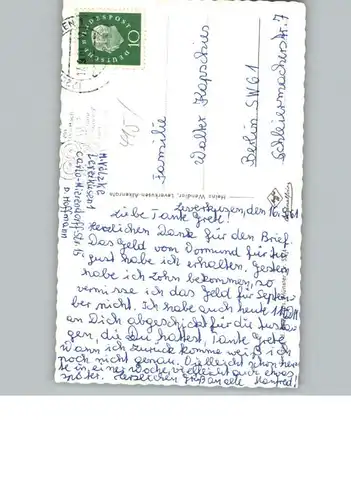 DEUTSCHE BUNDESPOST
10
Familie
Walter Kapschus
Berlin SW61
Schleiermacherstr. 7
Heinz Wendler, Leverkusen-Alkenrath
M. Völzke
Leverkusen 1
Carlo-Mierendorff-Str. 15
b. Hoffmann
Leverkusen, den 16.9.61
Liebe Tante Grete!
Herzlichen Dank für den Brief.
Das Geld vom Vormund für
gust habe ich erhalten. Gestern
habe ich Lohn bekommen, so
vermisse ich das Geld für Septem
ber nicht. Ich habe auch heute
an Dich abgeschickt für die Ausla
gen, die Du hattest, Tante Grete
Wann ich zurück komme weiß ich
noch nicht genau. Vielleicht schon heu
te in einer Woche, vielleicht auch etwas
später. Herzlichen Gruß an alle Manfred!